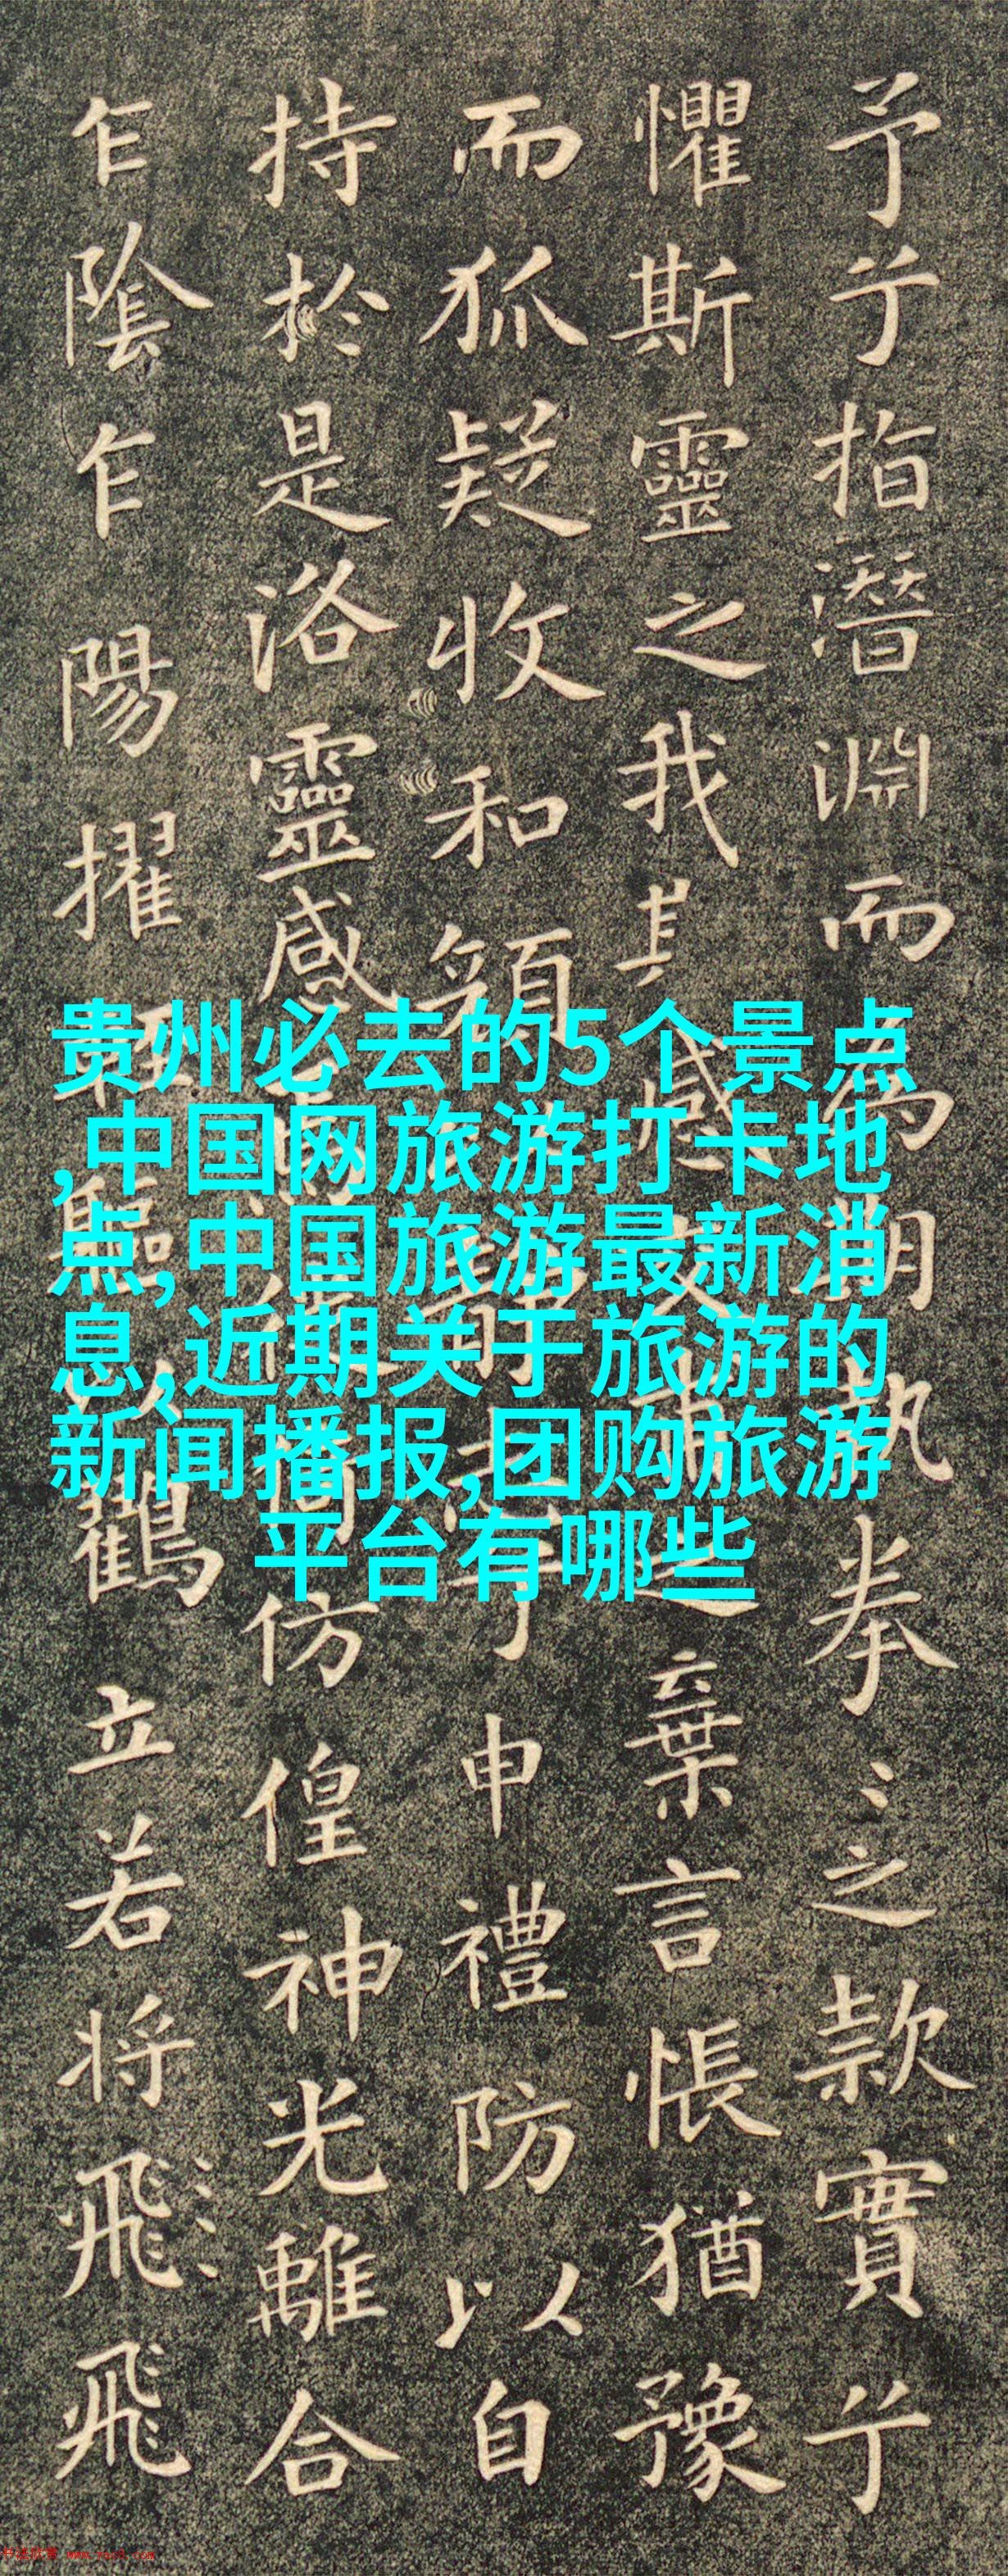 予兮指潛淵而為期執拳〻之款實兮
懼斯靈之我其感交甫之棄言悵猶豫
而狐疑收和顏靜志兮申禮防以自
持於是洛靈感焉徙倚仿偟神光離合
乍陰乍陽擢輕軀以鶴立若將飛飛
贵州必去的5个景点
,中国网旅游打卡地
点,中国旅游最新消
息,近期关于旅游的
新闻播报,团购旅游
平台有哪些